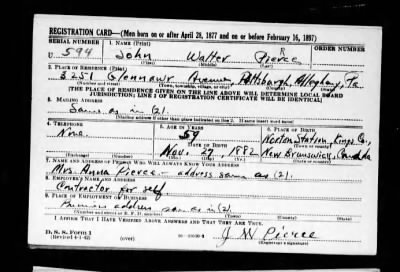 REGISTRATION CARD—(Men born on or after April 28, 1877 and on or before February 16, 1897)
SERIAL NUMBER 1. NAME (Print)
U 594 John Walter Pierce
(First) (Middle) (Last)
2. PLACE OF RESIDENCE (Print)
3251 Avenue Pittsburgh, Allegheny, Pa.
(Number and street) (Town, township, village, or city) (County) (State)
[THE PLACE OF RESIDENCE GIVEN ON THE LINE ABOVE WILL DETERMINE LOCAL BOARD
JURISDICTION; LINE 2 OF REGISTRATION CERTIFICATE WILL BE IDENTICAL]
3. MAILING ADDRESS
Same as in (2).
(Mailing address if other than place indicated on line 2. If same insert word same)
4. TELEPHONE 5. AGE IN YEARS 6. PLACE OF BIRTH
None. 59 Norton Station, Kings Co.,
DATE OF BIRTH (Town or county)
Nov. 27, 1882 New Brunswick, Canada
(Exchange) (Number) (Mo.) (Day) (Yr.) (State or country)
7. NAME AND ADDRESS OF PERSON WHO WILL ALWAYS KNOW YOUR ADDRESS
Mrs. Anna Pierce - address same as (2).
8. EMPLOYER'S NAME AND ADDRESS
Contractor for self.
9. PLACE OF EMPLOYMENT OR BUSINESS
Business address same as in (2).
(Number and street or R. F. D. number) (Town) (County) (State)
I AFFIRM THAT I HAVE VERIFIED ABOVE ANSWERS AND THAT THEY ARE TRUE.
D. S. S. Form 1
(Revised 4-1-42) (over) J W Pierce
(Registrant's signature)